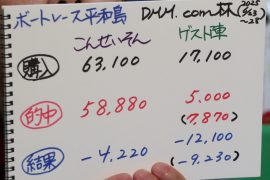 ボートレース平和島 DMM.com杯 2025 9/23 ～28
こんせいそん ゲスト陣
購入 63,100 17,100
的中 58,880 5,000
(7,870)
結果 -4,220 -12,100
(-9,230)